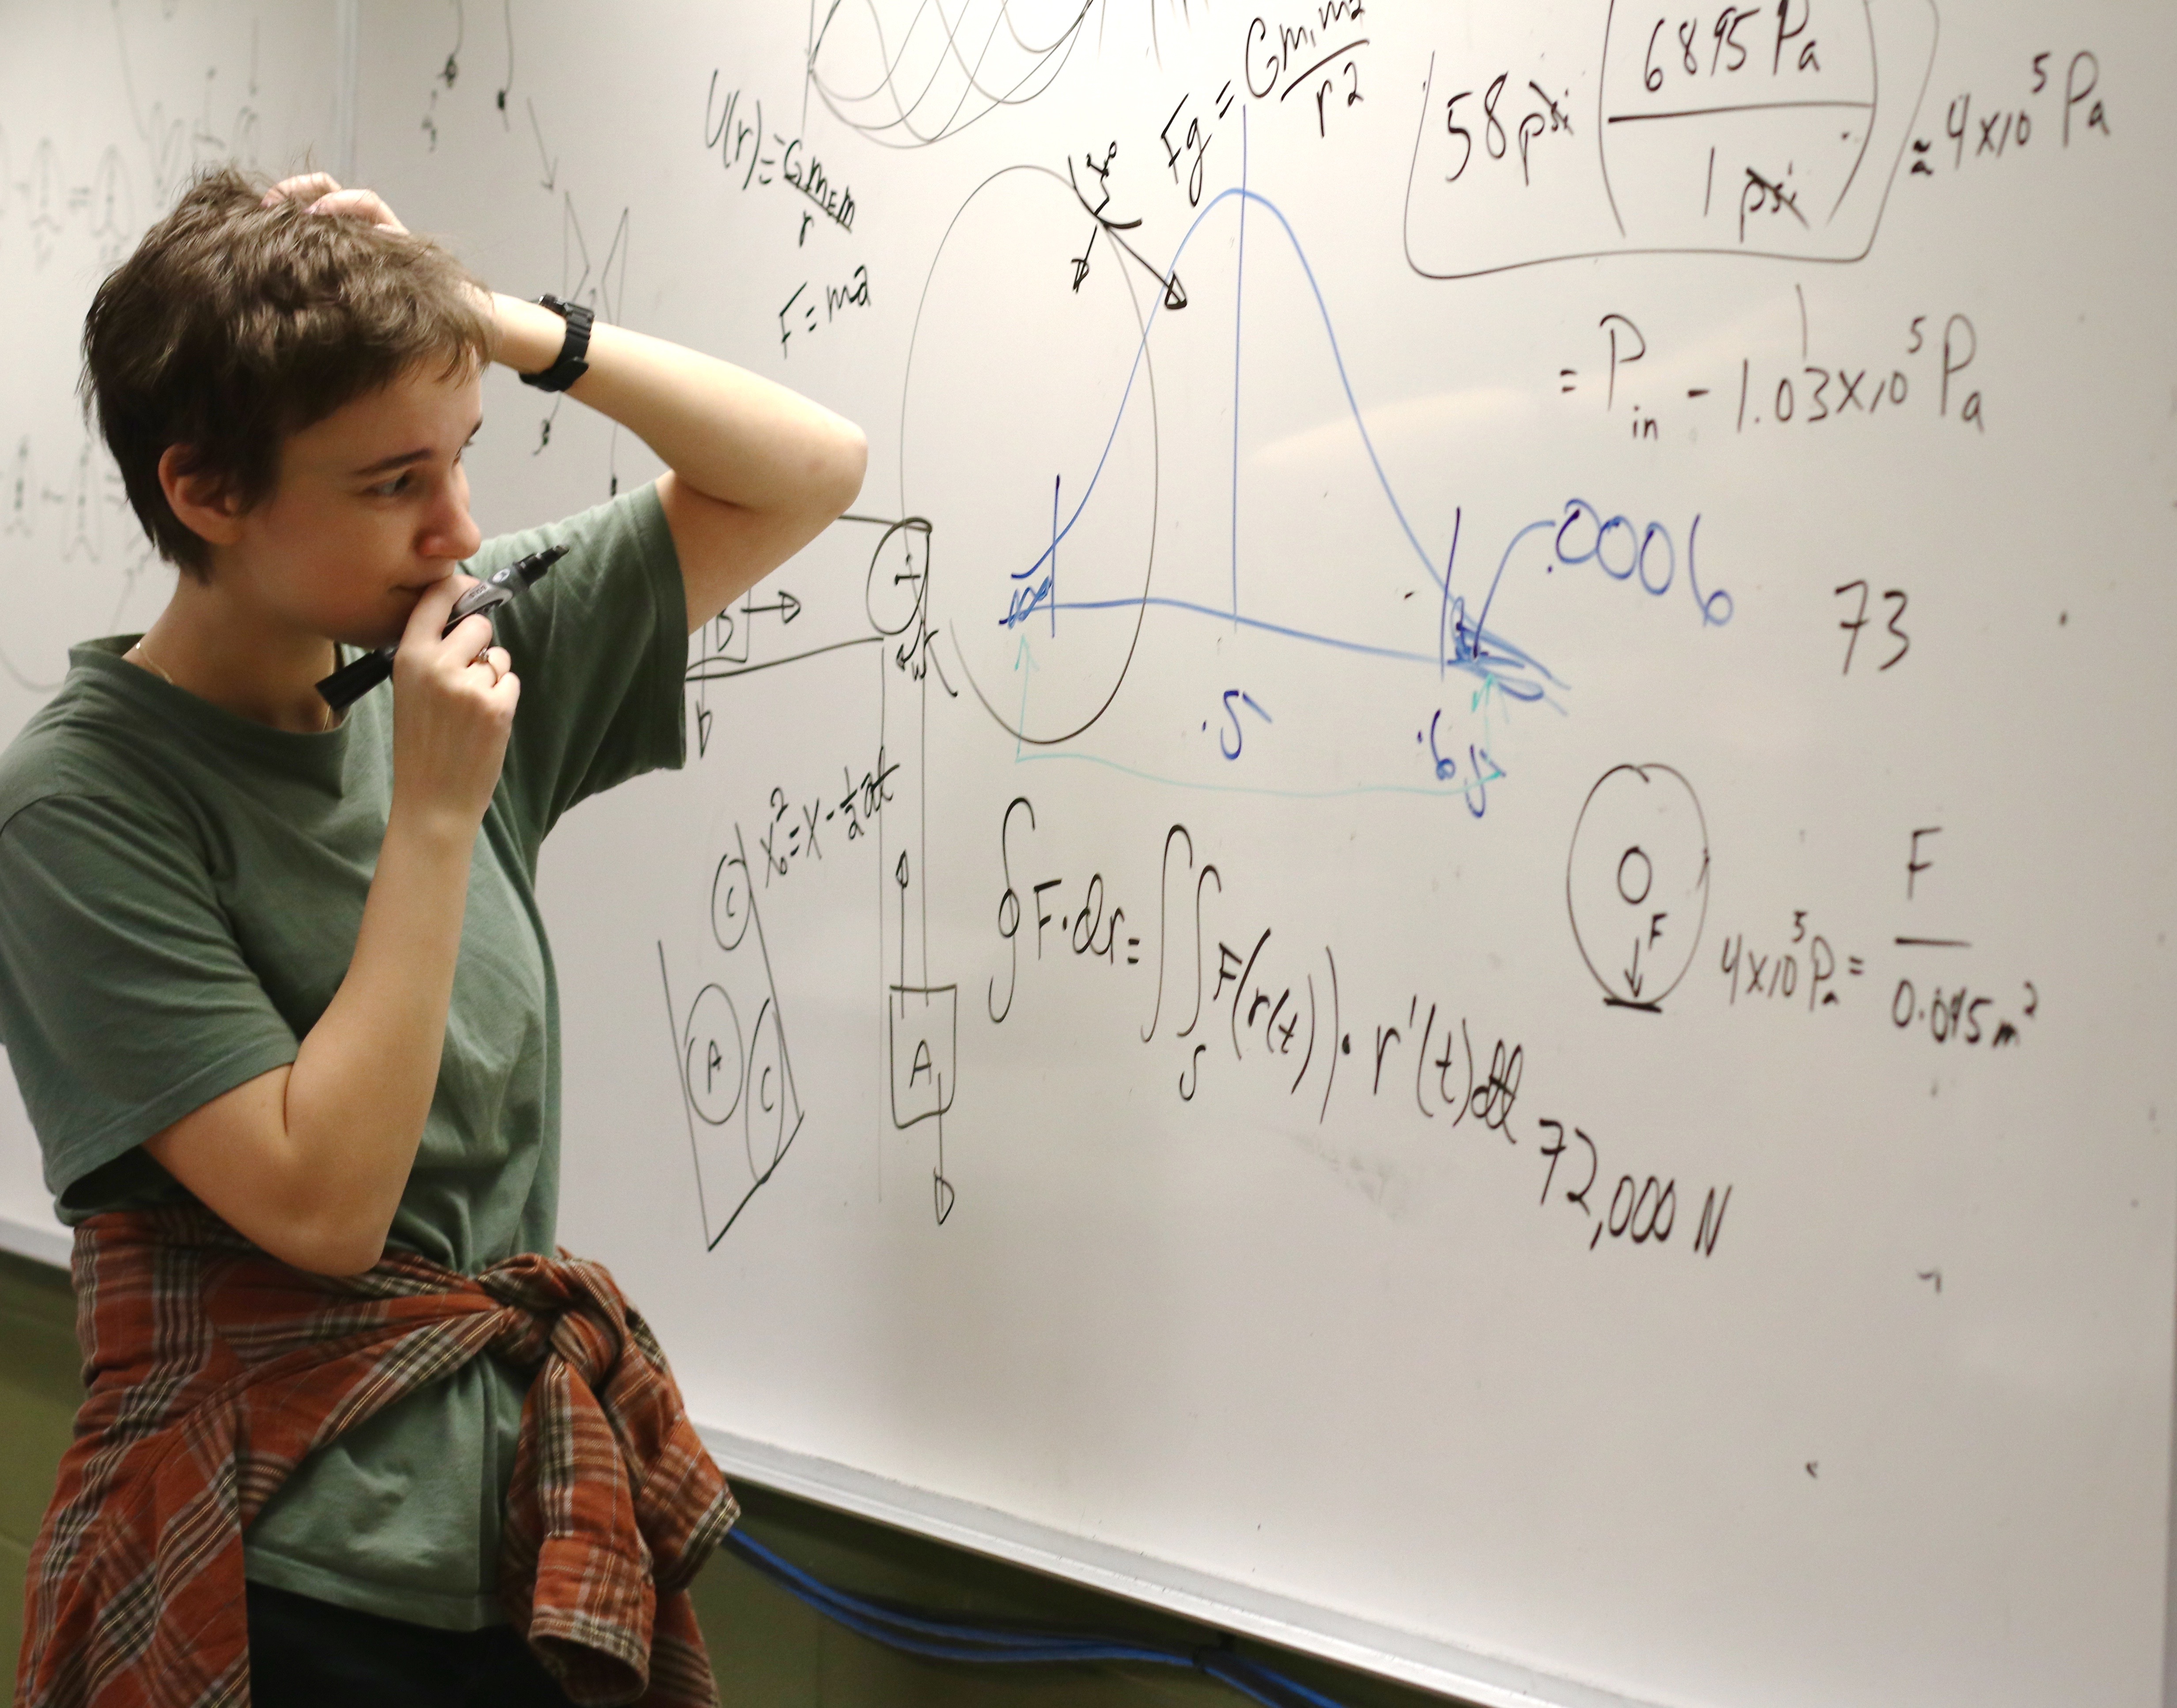 U(r) = -GmEm/r
F = ma
Fg = Gm₁m₂/r2
58psi (6895 Pa / 1 psi) ≈ 4x10⁵ Pa
= Pin - 1.03x10⁵ Pa
.0006
73
.5
.6
B
D
x₀² = x - ½at
C
A
C
A
∮F·dr = ∬S F(r(t))·r'(t)dt
F
4x10⁵Pa = F / 0.045m²
72,000 N